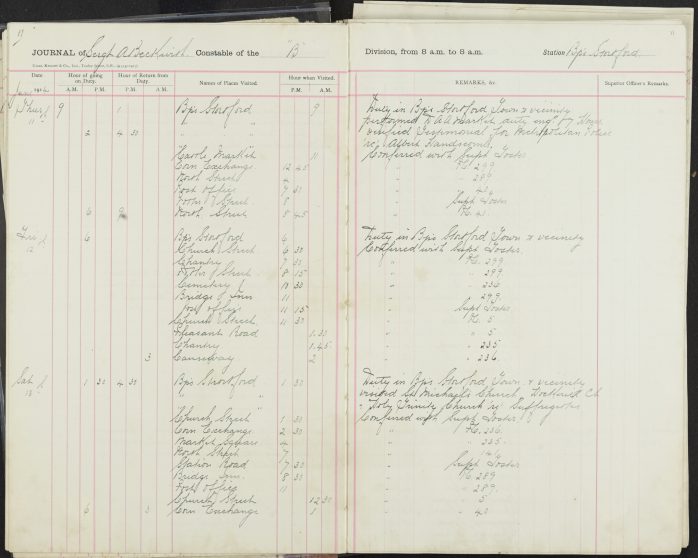 11
11
JOURNAL of Sergt A Beckhurst Constable of the "B" Division, from 8 a.m. to 8 a.m. Station Bps Stortford
Date Hour of going on Duty. Hour of Return from Duty. Names of Places Visited. Hour when Visited. REMARKS, &c. Superior Officer's Remarks.
A.M. P.M. A.M. P.M. P.M. A.M.
Thur 9 1 Bps Stortford 9 Duty in Bps Stortford Town & vicinity
11 " " performed
2 4 30 verified for Metropolitan Police
re Albert
Cattle Market 11 Conferred with Supt Foster
Corn Exchange 12 45 " PC 299
North Street " 289
Post Office 7 " 40
8 " Supt Foster
6 North Street 8 45 " PC 40
Fri 6 Bps Stortford 6 Duty in Bps Stortford Town & vicinity
12 Church Street 6 30 Conferred with Supt Foster
Chantry 7 30 " PC 299
Street 8 15 " 299
Cemetery 10 30 " 236
Bridge 11 " 299
Post Office 11 15 " Supt Foster
Church Street 11 30 " PC 5
Road 1.30 " " 5
Chantry 1.45 " 235
3 Causeway 2 " 236
Sat 1 30 4 30 Bps Stortford 1 30 Duty in Bps Stortford Town & vicinity
13 " " visited St Michaels Church,
Holy Trinity Church re Suffragettes
Church Street 1 30 Conferred with Supt Foster
Corn Exchange 2 30 " PC 236
Market Square 4 " 235
North Street 7 " 146
Station Road 7 30 " Supt Foster
Bridge 8 30 " PC 289
Post Office 11 " 289
Church Street 12 30 " 5
6 3 Corn Exchange 1 " 40